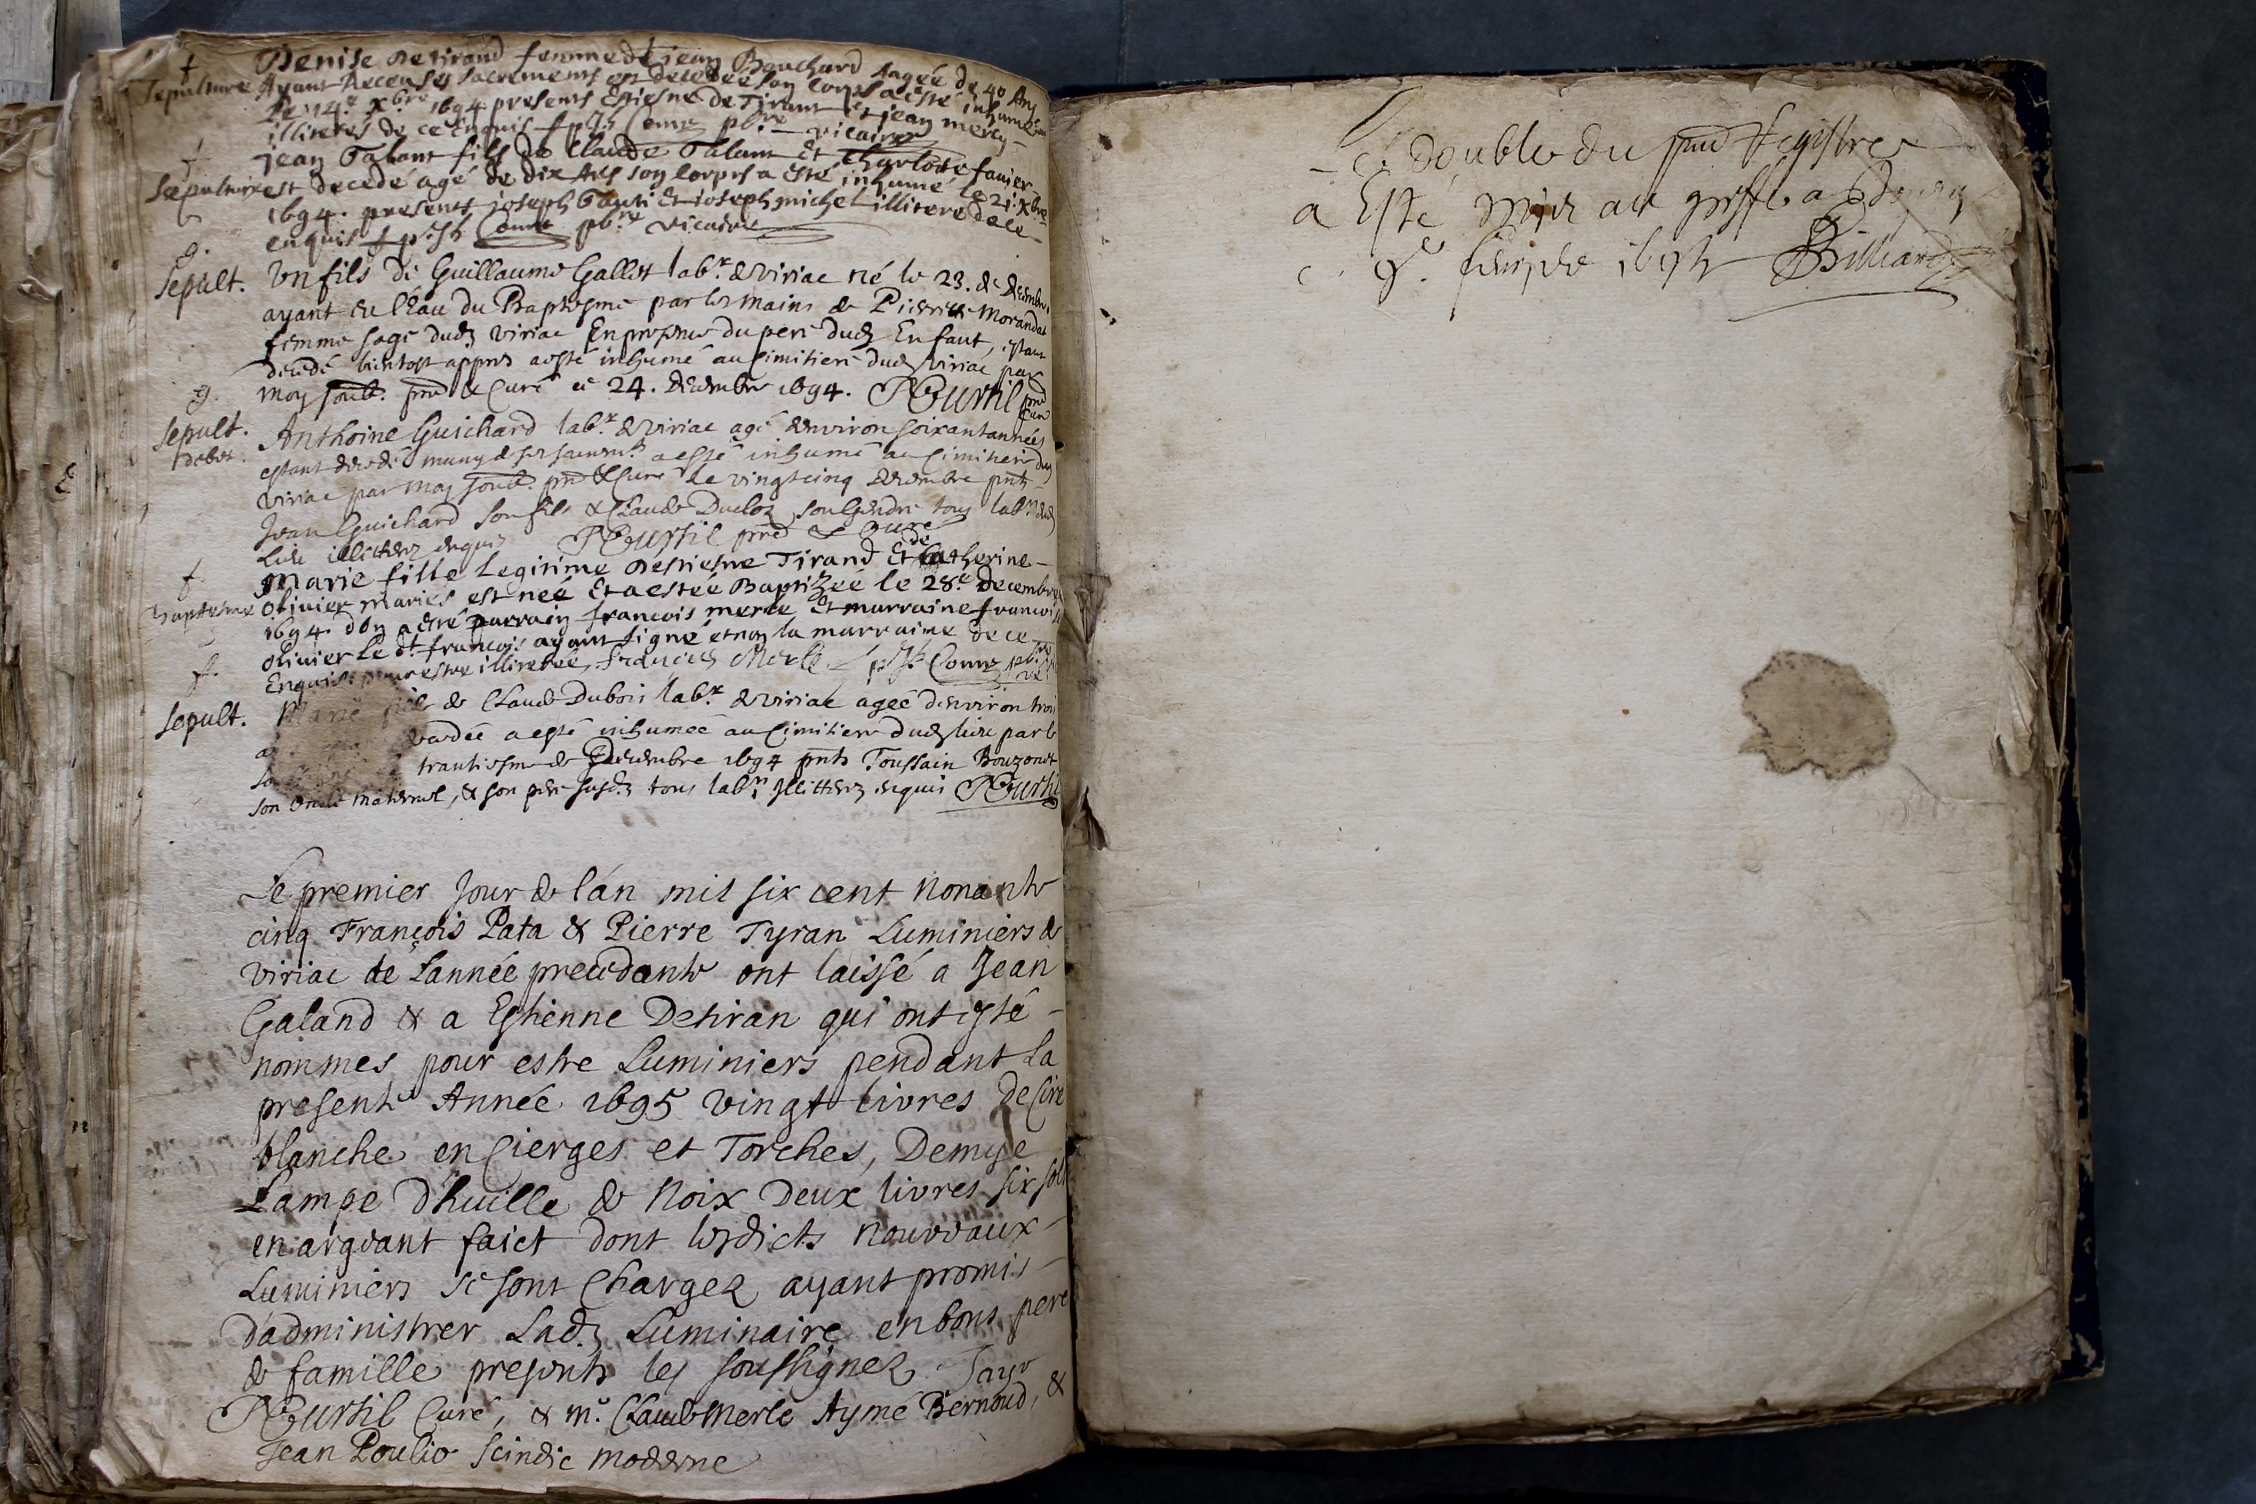 Denise Detirand femme de jean Bouchard Aagée de 40 Ans
Sepulture Ayant Receu ses sacrements est decedée son corps a esté inhumé
Le 14.e Xbre 1694 presents Estiesne de Tirant et jean mercy
illiteres de ce enquis f pbre vicaire
jean Galant fils de Claude Galant Et Charlotte fanier
Sepulture est decedé agé de dix Ans son corps a Esté inhumé le 21. Xbre
1694. presents joseph Et joseph michel illitere de ce
enquis pb.re vicaire
g.
Sepult. Un fils de Guillaume Gallet lab.r de viriac né le 23. de decembre
ayant eu l'Eau du Baptesme par les mains de Pierrette Morandat
femme sage dud. viriac En presence du pere dud. Enfant, estant
decedé bientost apprez a esté inhumé au Cimitiere dud. viriac par
g. moy soub. pre & Curé ce 24. decembre 1694. Curtil pre Curé
Sepult. Anthoine Guichard lab.r de viriac agé denviron soixant années
debet. estant decedé muny de ses sacrem.ts a esté inhumé au Cimitiere dud.
viriac par moy soub. pre & Curé le vingtcinq decembre pnts
Jean Guichard son fils & Claude Ducloz son Gendre tous lab.rs dud.
Lieu illitterez enquis Curtil pre & Curé
Marie fille legitime Destiesne Tirand Et de Catherine
Baptesme Olivier mariés est née Et a estée Baptizée le 28.e Decembre
1694. d'on a Esté parrain francois merle Et marraine francoise
olivier Le dt francois ayant signé et non la marraine de ce
Enquise pour estre illiterée, francois Merle
Sepult. Marie fille de Claude Dubois lab.r de viriac agée denviron trois
decedée a esté inhumée au Cimitiere dud. lieu par le
trantiesme de Decembre 1694 pnts Toussain Bouzonet
son oncle maternel, & son pere susd. tous lab.rs Illitterez enquis Curtil
Le premier Jour de l'an mil six cent nonante
cinq François Pata & Pierre Tyran Luminiers de
viriac de Lannée precedante ont laissé a Jean
Galand & a Esthienne Detiran qui ont esté
nommes pour estre Luminiers pendant La
presente Année 1695 vingt livres De Cire
blanche en Cierges et Torches, Demye
Lampe D'huille de Noix Deux livres six sols
en argeant faict dont lesdicts nouveaux
Luminiers se sont Chargez ayant promis
D'administrer Lad. Luminaire en bons pere
de famille presents les soussignez
Curtil Curé, & M.e Claude Merle Aymé Bernoud, &
Jean Poulio Scindic moderne
Ce double du pnt Registre
a Esté mis au greffe a Bourg
ce 9.e 1695 Billiard